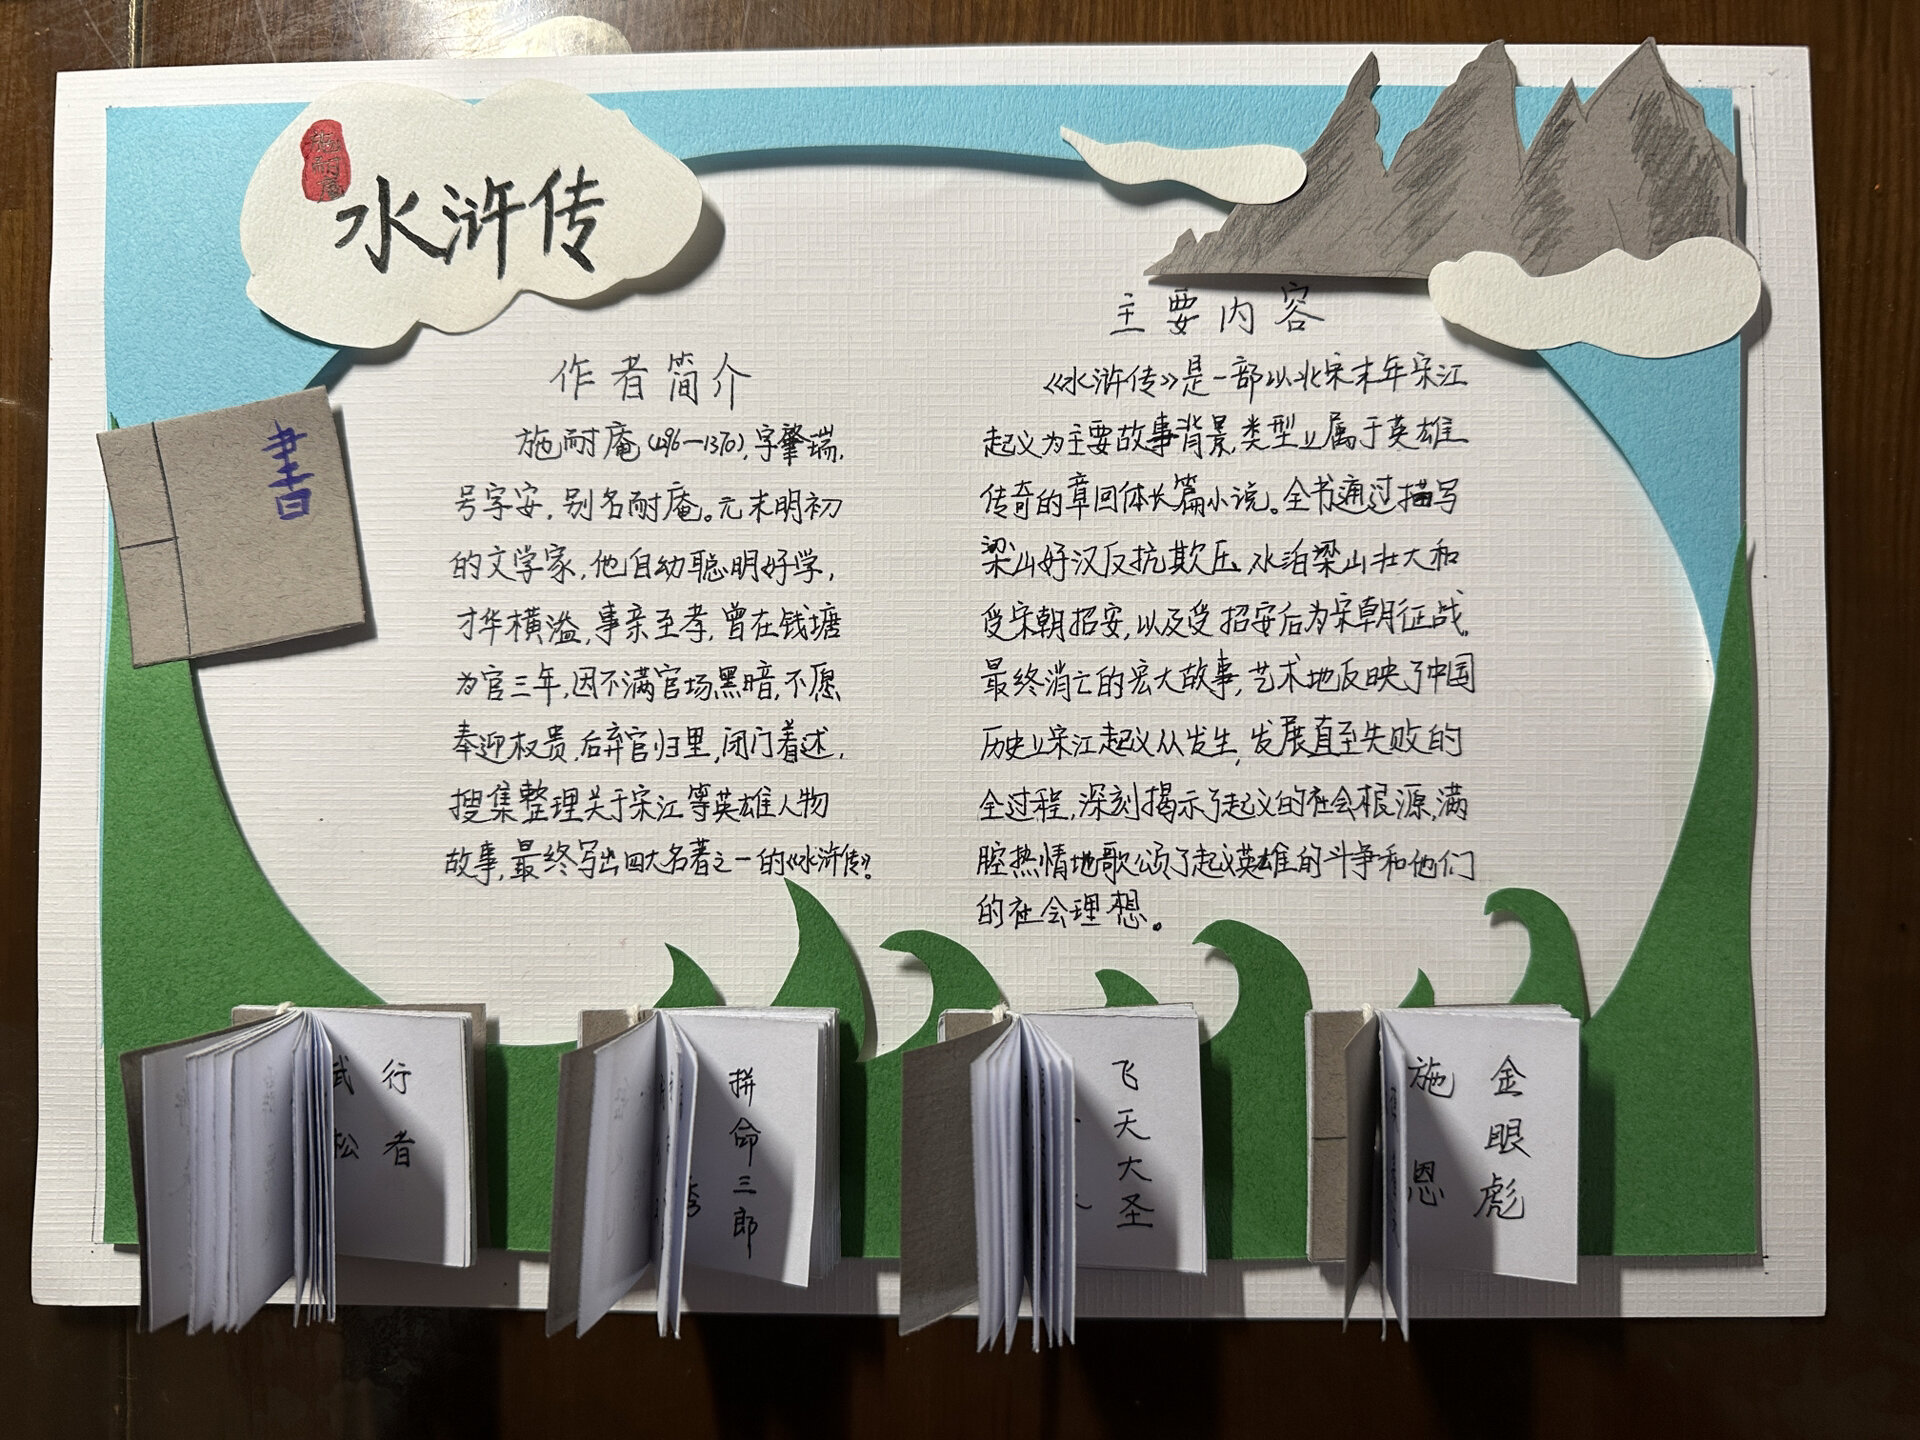 施耐庵
水浒传
書
作者简介
施耐庵(1296—1370),字肇瑞,
号字安,别名耐庵。元末明初
的文学家,他自幼聪明好学,
才华横溢,事亲至孝,曾在钱塘
为官三年,因不满官场黑暗,不愿
奉迎权贵,后弃官归里,闭门着述,
搜集整理关于宋江等英雄人物
故事,最终写出四大名著之一的《水浒传》。
主要内容
《水浒传》是一部以北宋末年宋江
起义为主要故事背景,类型上属于英雄
传奇的章回体长篇小说。全书通过描写
梁山好汉反抗欺压、水泊梁山壮大和
受宋朝招安,以及受招安后为宋朝征战,
最终消亡的宏大故事,艺术地反映了中国
历史上宋江起义从发生,发展直至失败的
全过程,深刻揭示了起义的社会根源,满
腔热情地歌颂了起义英雄的斗争和他们
的社会理想。
行者
武松
拼命三郎
秀
飞天大圣
金眼彪
施恩